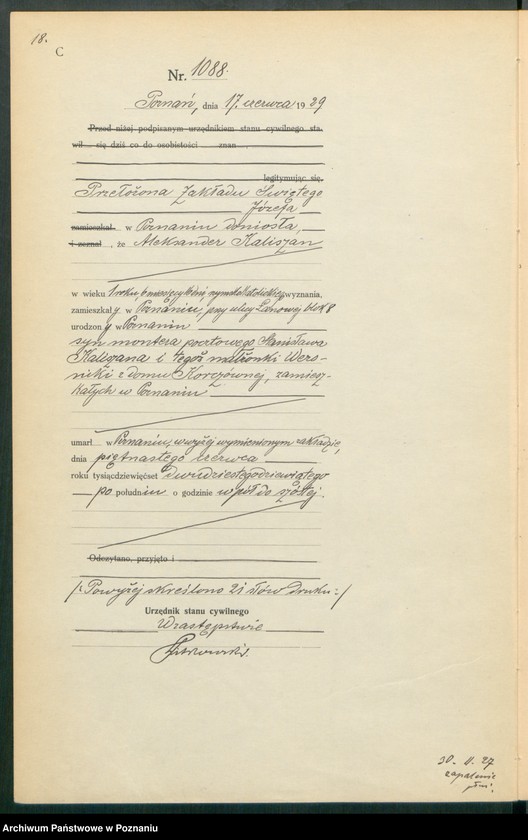 18.
C
Nr. 1088.
Poznań, dnia 17. czerwca 1929
Przed niżej podpisanym urzędnikiem stanu cywilnego sta-
wił się dziś co do osobistości znan
legitymując się.
Przełożona Zakładu Świętego
Józefa
zamieszkał w Poznaniu doniosła,
i zeznał, że Aleksander Kaliszan
w wieku 1 roku 6 miesięcy wyznania,
zamieszkały w Poznaniu, przy ulicy Łanowej blok 8
urodzony w Poznaniu
syn montera Stanisława
Kaliszana i tegoż małżonki Wero-
niki z domu Korczównej, zamiesz-
kałych w Poznaniu
umarł w Poznaniu, w wyżej wymienionym zakładzie,
dnia piętnastego czerwca
roku tysiącdziewięćset dwudziestegodziewiątego
po południu o godzinie wpół do szóstej.
Odczytano, przyjęto i
/: Powyżej skreślono 21 słów druku :/
Urzędnik stanu cywilnego
W zastępstwie
30. 11. 27
zapalenie
Archiwum Państwowe w Poznaniu